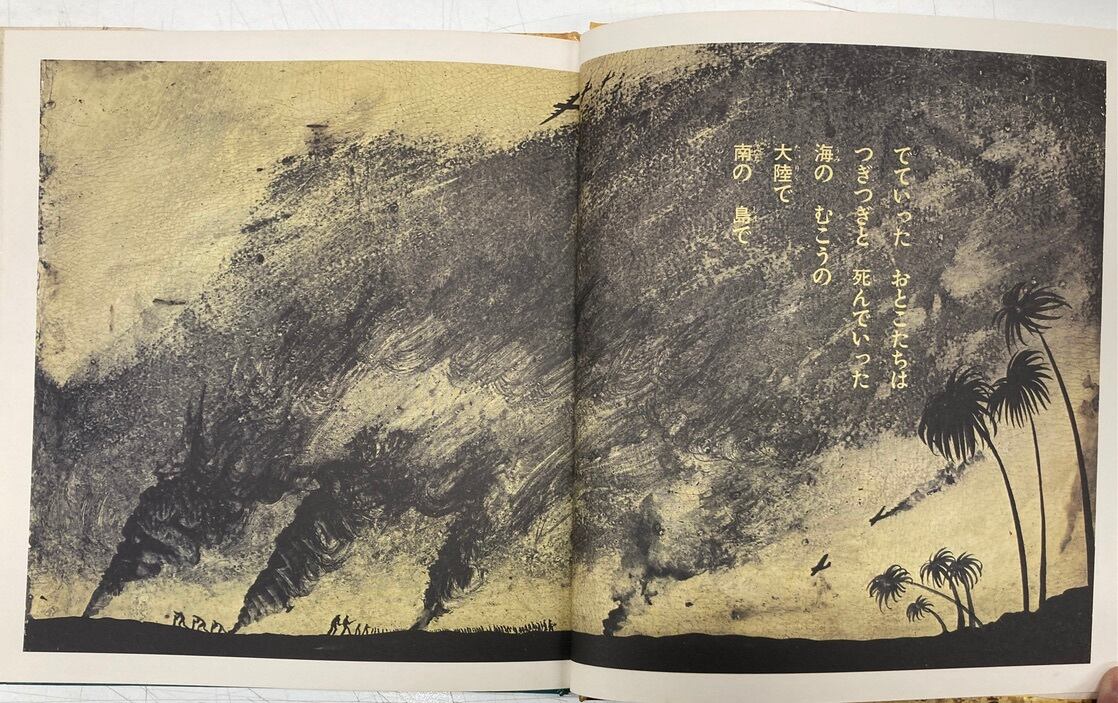 でていった　おとこたちは
つぎつぎと　死んでいった
海の　むこうの
大陸で
南の　島で